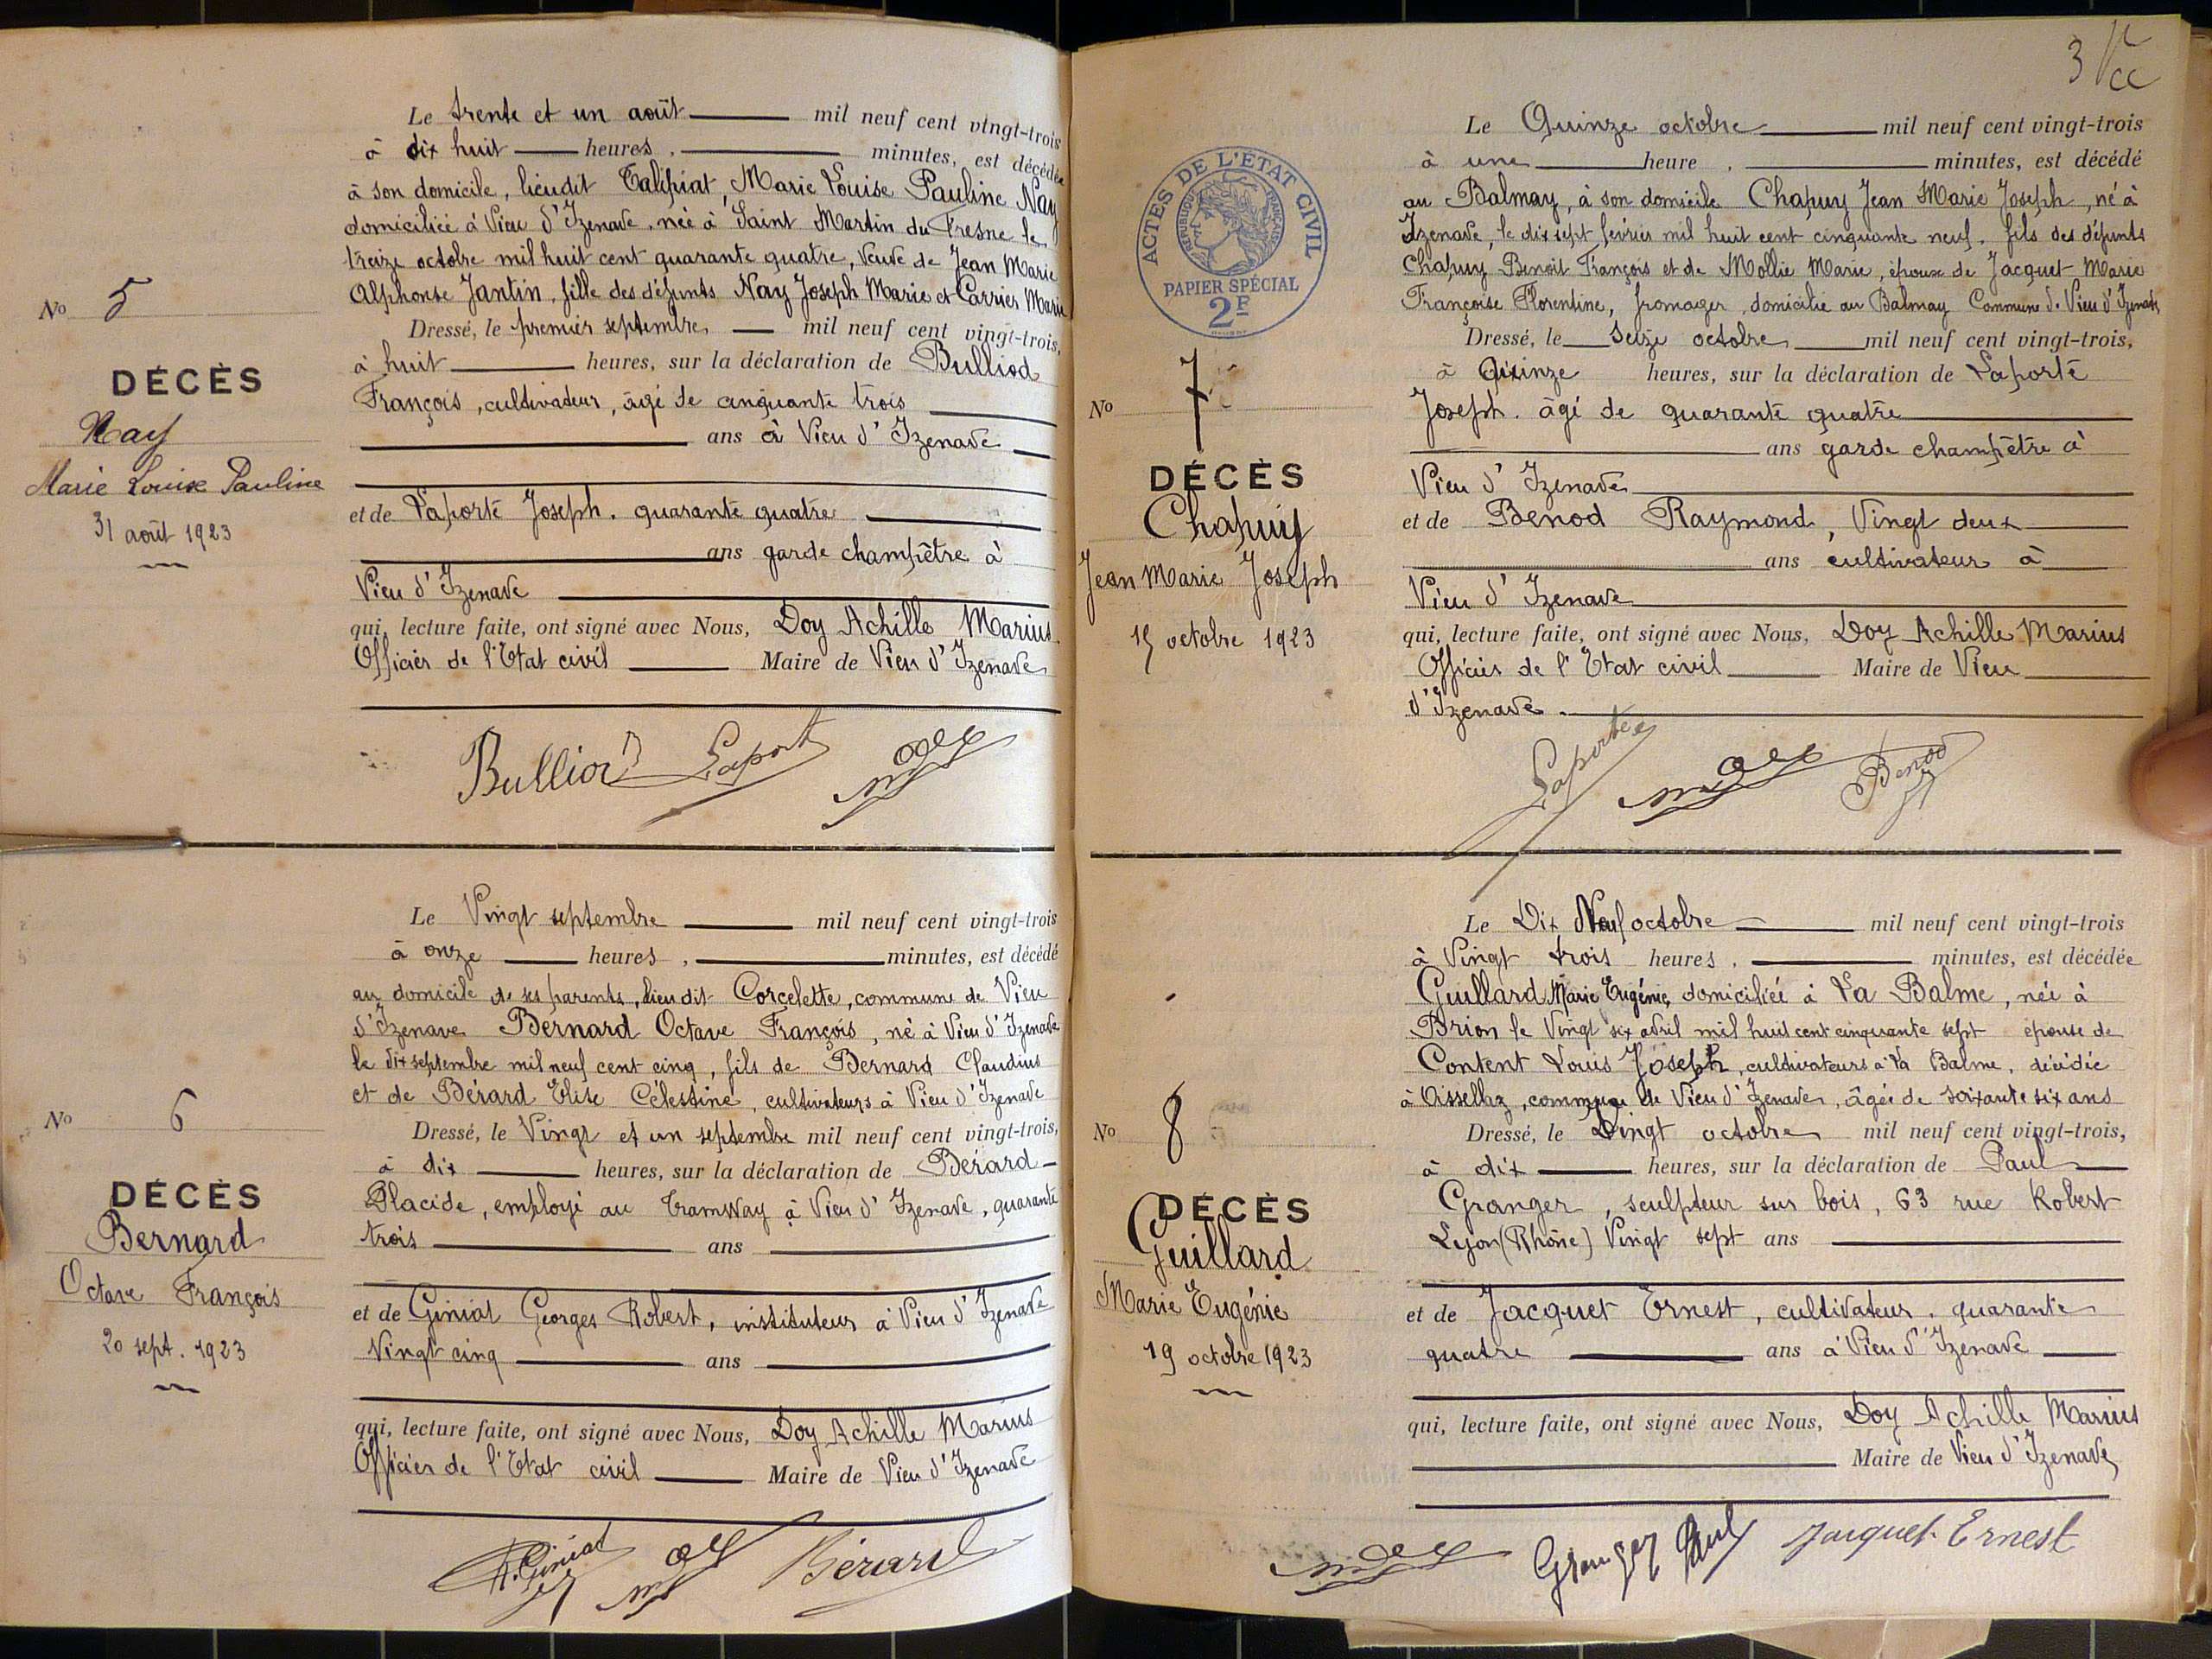 Le trente et un août mil neuf cent vingt-trois
à dix huit heures, minutes, est décédée
à son domicile, lieudit Talipiat, Marie Louise Pauline Nay
domiciliée à Vieu d'Izenave, née à Saint Martin du Fresne le
treize octobre mil huit cent quarante quatre, Veuve de Jean Marie
Alphonse Jantin, fille des défunts Nay Joseph Marie et Carrier Marie
No 5
Dressé, le premier septembre mil neuf cent vingt-trois,
à huit heures, sur la déclaration de Bulliod
DÉCÈS
François, cultivateur, âgé de cinquante trois
Nay
ans à Vieu d'Izenave
Marie Louise Pauline
31 août 1923
et de Laporte Joseph. quarante quatre
ans garde champêtre à
Vieu d'Izenave
qui, lecture faite, ont signé avec Nous, Doy Achille Marius
Officier de l'Etat civil Maire de Vieu d'Izenave
Bulliod Laporte
Le Vingt septembre mil neuf cent vingt-trois
à onze heures, minutes, est décédé
au domicile de ses parents, lieu dit Corcelette, commune de Vieu
d'Izenave Bernard Octave François, né à Vieu d'Izenave
le dix septembre mil neuf cent cinq, fils de Bernard Claudius
et de Bérard Elise Célestine, cultivateurs à Vieu d'Izenave
No 6
Dressé, le Vingt et un septembre mil neuf cent vingt-trois,
à dix heures, sur la déclaration de Bérard
DÉCÈS
Placide, employé au Tramway à Vieu d'Izenave, quarante
Bernard
trois ans
Octave François
et de Giniat Georges Robert, instituteur à Vieu d'Izenave
20 sept. 1923
Vingt cinq ans
qui, lecture faite, ont signé avec Nous, Doy Achille Marius
Officier de l'Etat civil Maire de Vieu d'Izenave
Giniat Bérard
3
Le Quinze octobre mil neuf cent vingt-trois
à une heure, minutes, est décédé
au Balmay, à son domicile Chapuy Jean Marie Joseph, né à
Izenave, le dix sept février mil huit cent cinquante neuf. fils des défunts
Chapuy Benoit François et de Mollie Marie, époux de Jacquet Marie
Françoise Florentine, fromager, domicilié au Balmay Commune de Vieu d'Izenave
ACTES DE L'ETAT CIVIL
REPUBLIQUE FRANÇAISE
PAPIER SPÉCIAL
2F
Dressé, le Seize octobre mil neuf cent vingt-trois,
à Quinze heures, sur la déclaration de Laporte
No 7
Joseph. âgé de quarante quatre
ans garde champêtre à
DÉCÈS
Vieu d'Izenave
Chapuy
et de Benod Raymond, Vingt deux
ans cultivateur à
Jean Marie Joseph
Vieu d'Izenave
15 octobre 1923
qui, lecture faite, ont signé avec Nous, Doy Achille Marius
Officier de l'Etat civil Maire de Vieu
d'Izenave.
Laporte Benod
Le Dix Neuf octobre mil neuf cent vingt-trois
à Vingt trois heures, minutes, est décédée
Guillard Marie Eugénie, domiciliée à La Balme, née à
Brion le Vingt six avril mil huit cent cinquante sept épouse de
Content Louis Joseph, cultivateurs à la Balme, décédée
à Aissellaz, commune de Vieu d'Izenave, âgée de soixante six ans
No 8
Dressé, le Vingt octobre mil neuf cent vingt-trois,
à dix heures, sur la déclaration de Paul
DÉCÈS
Granger, sculpteur sur bois, 63 rue Robert
Guillard
Lyon (Rhône) Vingt sept ans
Marie Eugénie
et de Jacquet Ernest, cultivateur. quarante
19 octobre 1923
quatre ans à Vieu d'Izenave
qui, lecture faite, ont signé avec Nous, Doy Achille Marius
Maire de Vieu d'Izenave
Granger Paul Jacquet Ernest